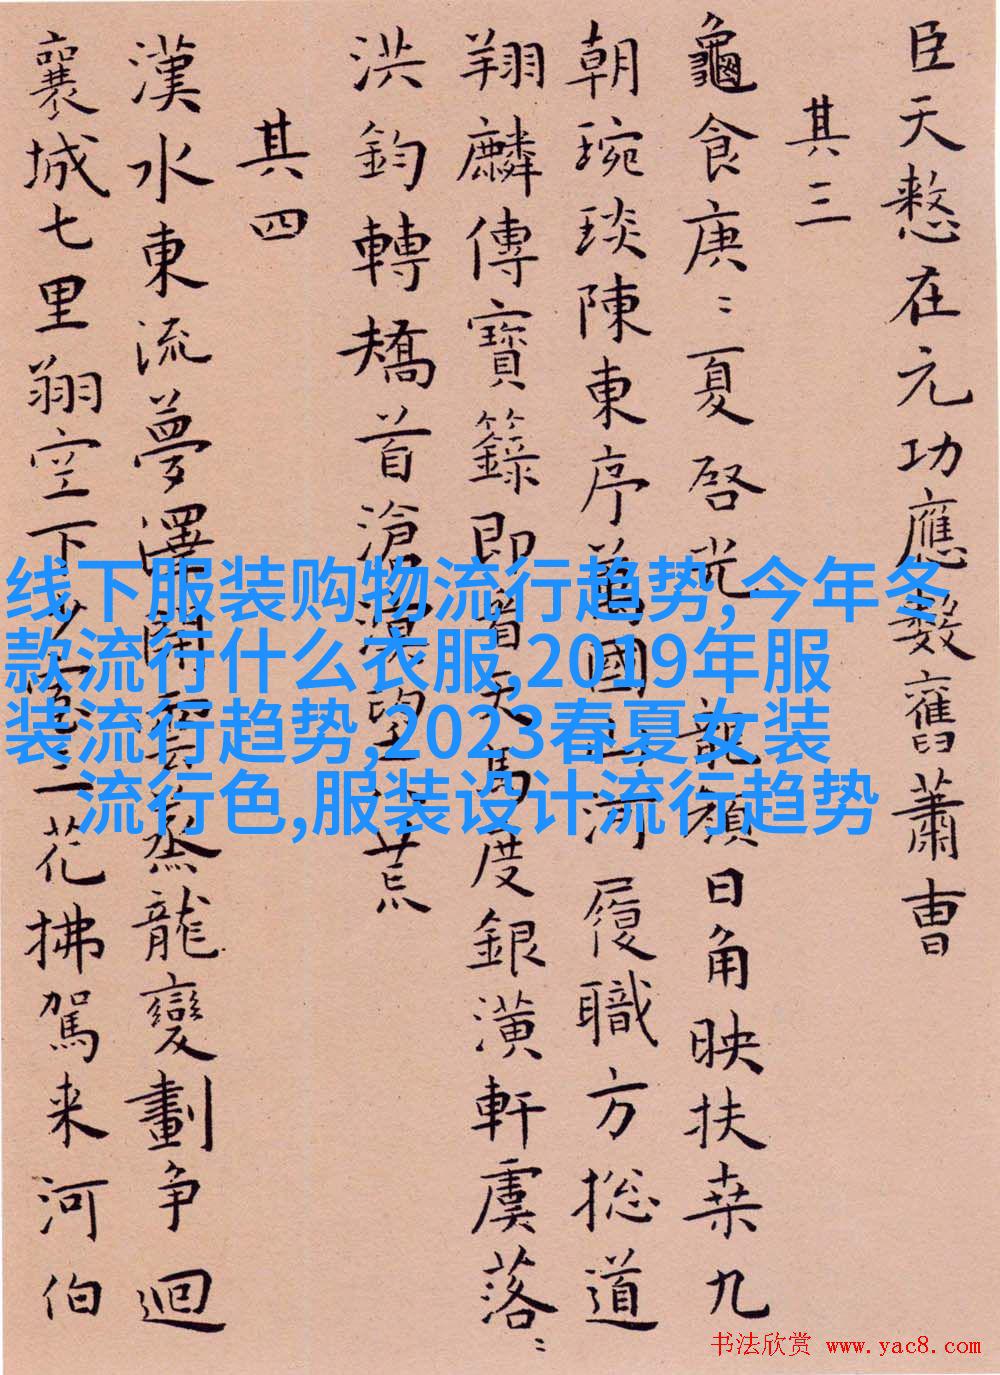 臣天憖在元功應數舊蕭曹
其三
龜食庚〻夏啓光龍顏日角映扶桒九
朝琬琰陳東序萬國山河履職方揔道
翔麟傳寶籙即看天馬度銀潢軒虞落〻
洪鈞轉矯首滄溟望八荒
其四
漢水東流夢澤開雲蒸龍變劃争迴
襄城七里翔空下花拂駕来河伯
线下服装购物流行趋势,今年冬
款流行什么衣服,2019年服
装流行趋势,2023春夏女装
流行色,服装设计流行趋势
书法欣赏 www.yac8.com